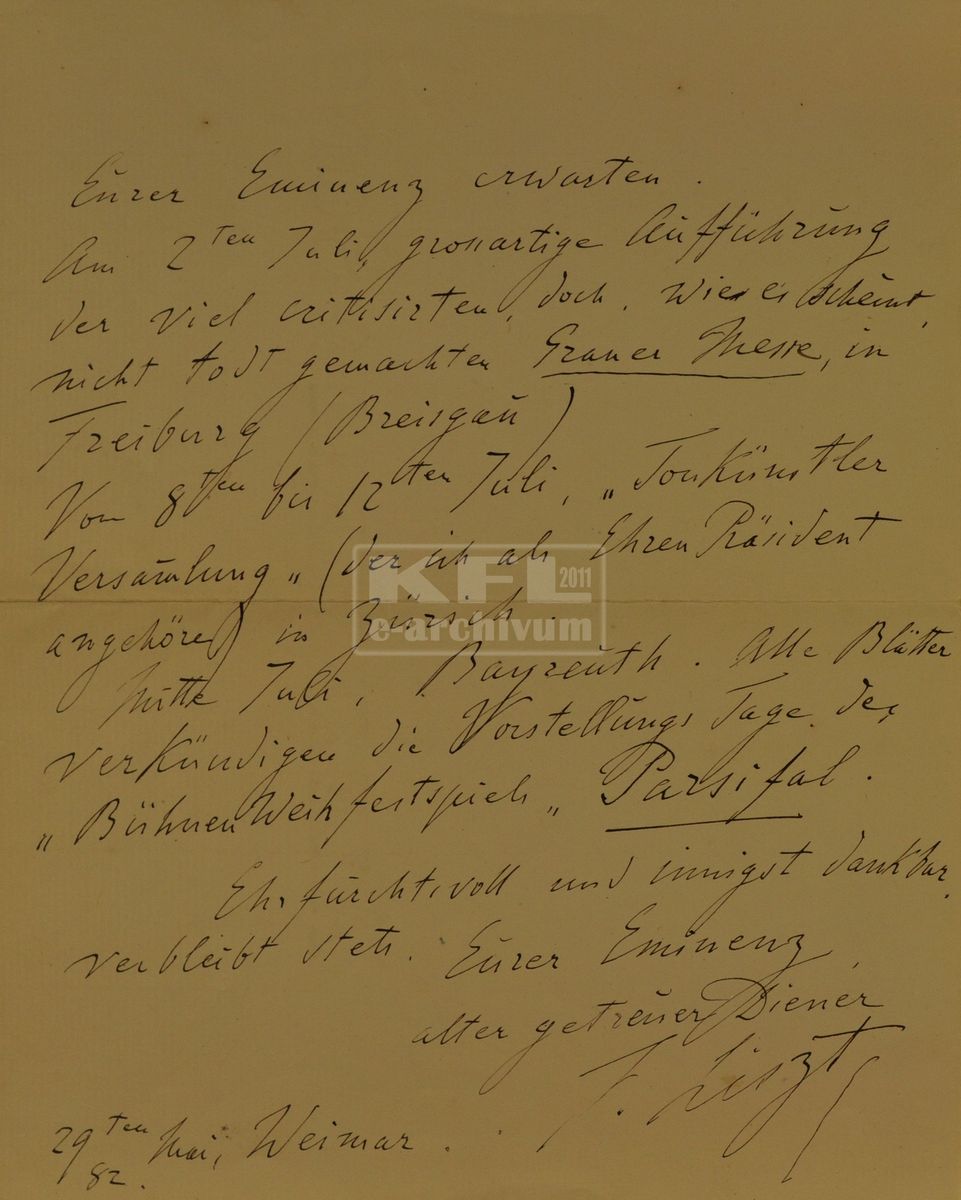 Eurer Eminenz erwarten.
Am 2ten Juli, grossartige Aufführung
der viel critisirten, doch, wie es scheint,
nicht todt gemachten Graner Messe, in
Freiburg (Breisgau)
Vom 8ten bis 12ten Juli, „Tonkünstler
Versam̄lung„ (der ich als Ehren Präsident
angehöre) in Zürich.
Mitte Juli, Bayreuth. Alle Blätter
verkündigen die Vorstellungs Tage des
„Bühnen Weihfestspiels„ Parsifal.
Ehrfurchtsvoll und innigst dankbar,
verbleibt stets. Eurer Eminenz,
alter getreuer Diener
F. Liszt
29ten Mai, Weimar.
82.
KFL 2011
e-archivum